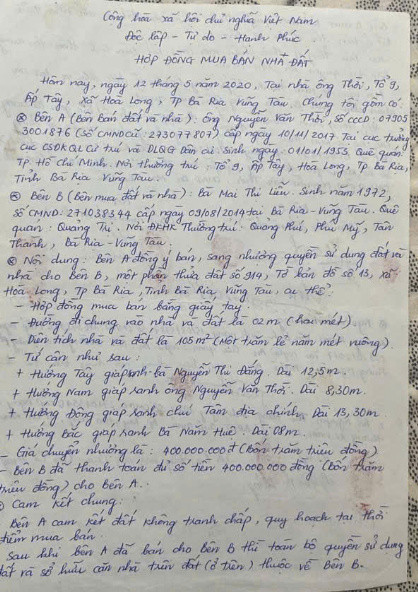 Cộng hòa xã hội chủ nghĩa Việt Nam
Độc lập - Tự do - Hạnh Phúc
HỢP ĐỒNG MUA BÁN NHÀ ĐẤT
Hôm nay, ngày 12 tháng 5 năm 2020, Tại nhà ông Thời, Tổ 9,
Ấp Tây, xã Hoà Long, Tp Bà Rịa Vũng Tàu. Chúng tôi gồm có:
Bên A (Bên bán đất và nhà): Ông Nguyễn Văn Thời, số CCCD: 07905
3001876 (Số CMND cũ: 273077807) cấp ngày 10/11/2017 Tại cục trưởng
cục CSĐKQL Cư trú và DLQG Dân cư. Sinh ngày: 01/01/1953. Quê quán:
Tp Hồ Chí Minh. Nơi thường trú: Tổ 9, Ấp Tây, Hoà Long, Tp Bà Rịa,
Tỉnh Bà Rịa Vũng Tàu.
Bên B (Bên mua đất và nhà): Bà Mai Thị Liễu. Sinh năm 1972,
Số CMND: 271038344 cấp ngày 09/08/2014 tại Bà Rịa - Vũng Tàu. Quê
quán: Quảng Trị. Nơi ĐKHK Thường trú: Quảng Phú, Phú Mỹ, Tân
Thành, Bà Rịa - Vũng Tàu.
Nội dung: Bên A đồng ý bán, sang nhượng quyền sử dụng đất và
nhà cho bên B, một phần thửa đất số 914, Tờ bản đồ số 13, xã
Hoà Long, Tp Bà Rịa, Tỉnh Bà Rịa Vũng Tàu, cụ thể:
- Hợp đồng mua bán bằng giấy tay:
- Đường đi chung vào nhà và đất là 02m (hai mét).
- Diện tích nhà và đất là 105m² (Một trăm lẻ năm mét vuông).
- Tứ cận như sau:
+ Hướng Tây giáp ranh bà Nguyễn Thị Đáng. Dài 12,5m.
+ Hướng Nam giáp ranh ông Nguyễn Văn Thời. Dài 8,30m.
+ Hướng Đông giáp ranh chú Tâm địa chính. Dài 13,30m
+ Hướng Bắc giáp ranh Bà Năm Huê. Dài 08m.
- Giá chuyển nhượng là: 400.000.000đ (Bốn trăm triệu đồng)
- Bên B đã thanh toán đủ số tiền 400.000.000 đồng (Bốn trăm
triệu đồng) cho Bên A.
Cam kết chung:
Bên A cam kết đất không tranh chấp, quy hoạch tại thời
điểm mua bán.
Sau khi bên A đã bán cho bên B thì toàn bộ quyền sử dụng
đất và sở hữu căn nhà trên đất (ở trên) thuộc về Bên B.